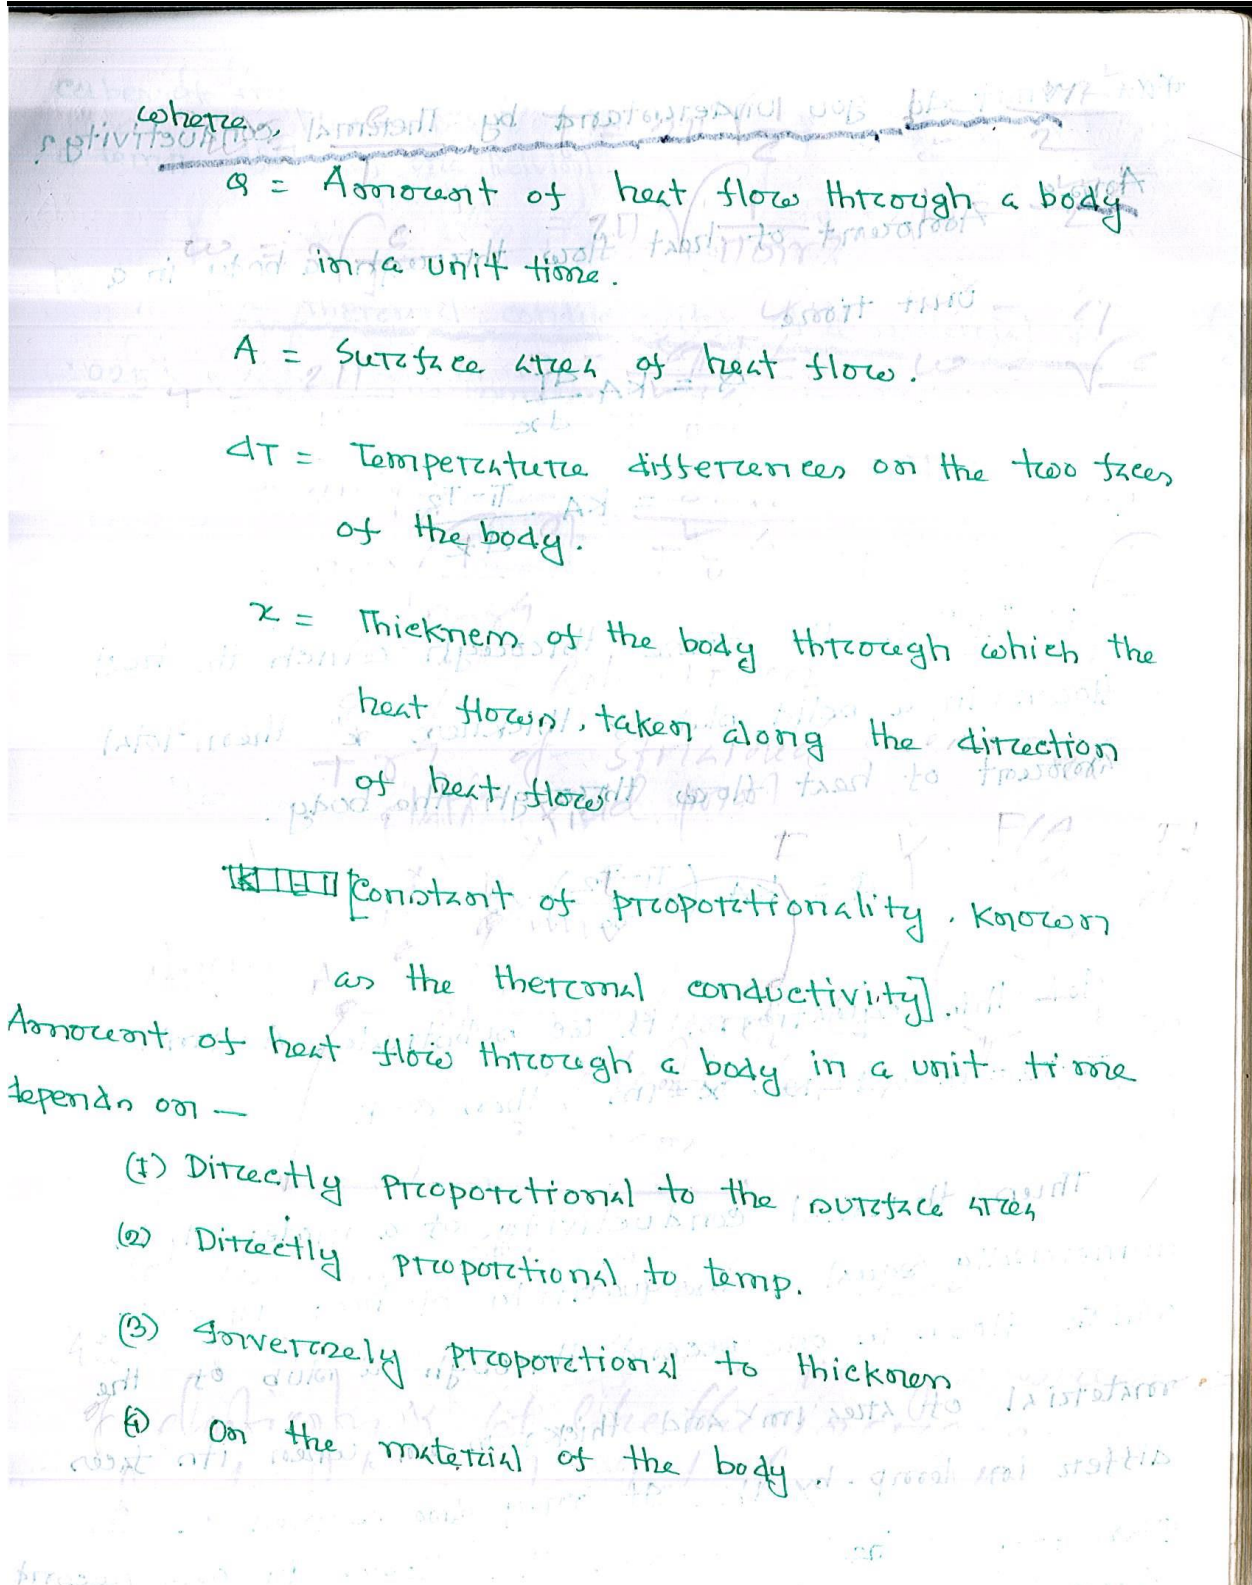 where,
Q = Amount of heat flow through a body
in a unit time.
A = Surface area of heat flow.
dT = Temperature differences on the two faces
of the body.
x = Thickness of the body through which the
heat flows, taken along the direction
of heat flow
[Constant of proportionality. Known
as the thermal conductivity].
Amount of heat flow through a body in a unit time
depends on —
(1) Directly proportional to the surface area
(2) Directly proportional to temp.
(3) Inversely proportional to thickness
(4) On the material of the body.